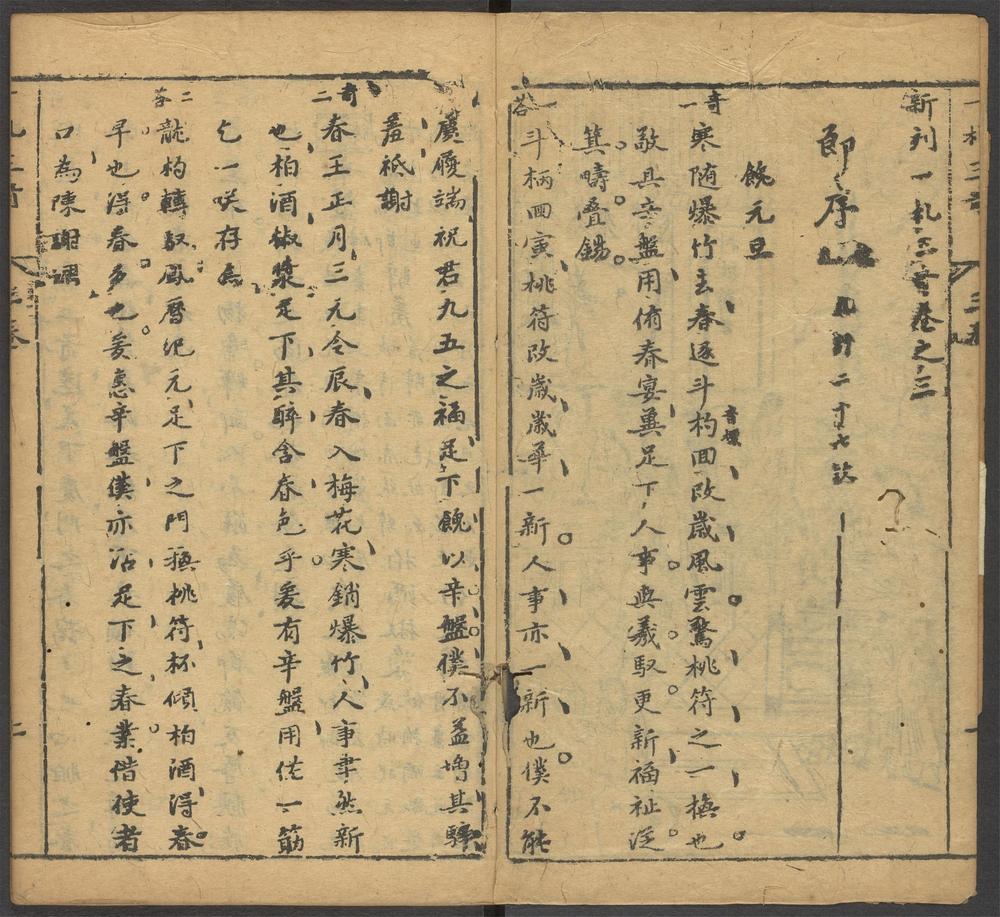 新刊一札三奇卷之三
節序 凡計二十七款
餽元旦
奇一 寒随爆竹去春逐斗杓音標回改歲風雲驚桃符之一換也
敬具辛盤用侑春宴冀足下人事與羲馭更新福祉從
箕疇疊錫
答一 斗柄回寅桃符改歲歲華一新人事亦一新也僕不能
賡履端祝君九五之福足下餽以辛盤僕不益增其騂
羞祇謝
奇二 春王正月三元令辰春入梅花寒銷爆竹人事聿然新
也柏酒椒漿足下其醉含春色乎爰有辛盤用供一筯
乞一咲存為
答二 龍杓轉馭鳳曆紀元足下之門桃符杯傾柏酒得春
早也得春多也爰惠辛盤僕亦沾足下之春業借使者
口為陳謝謂